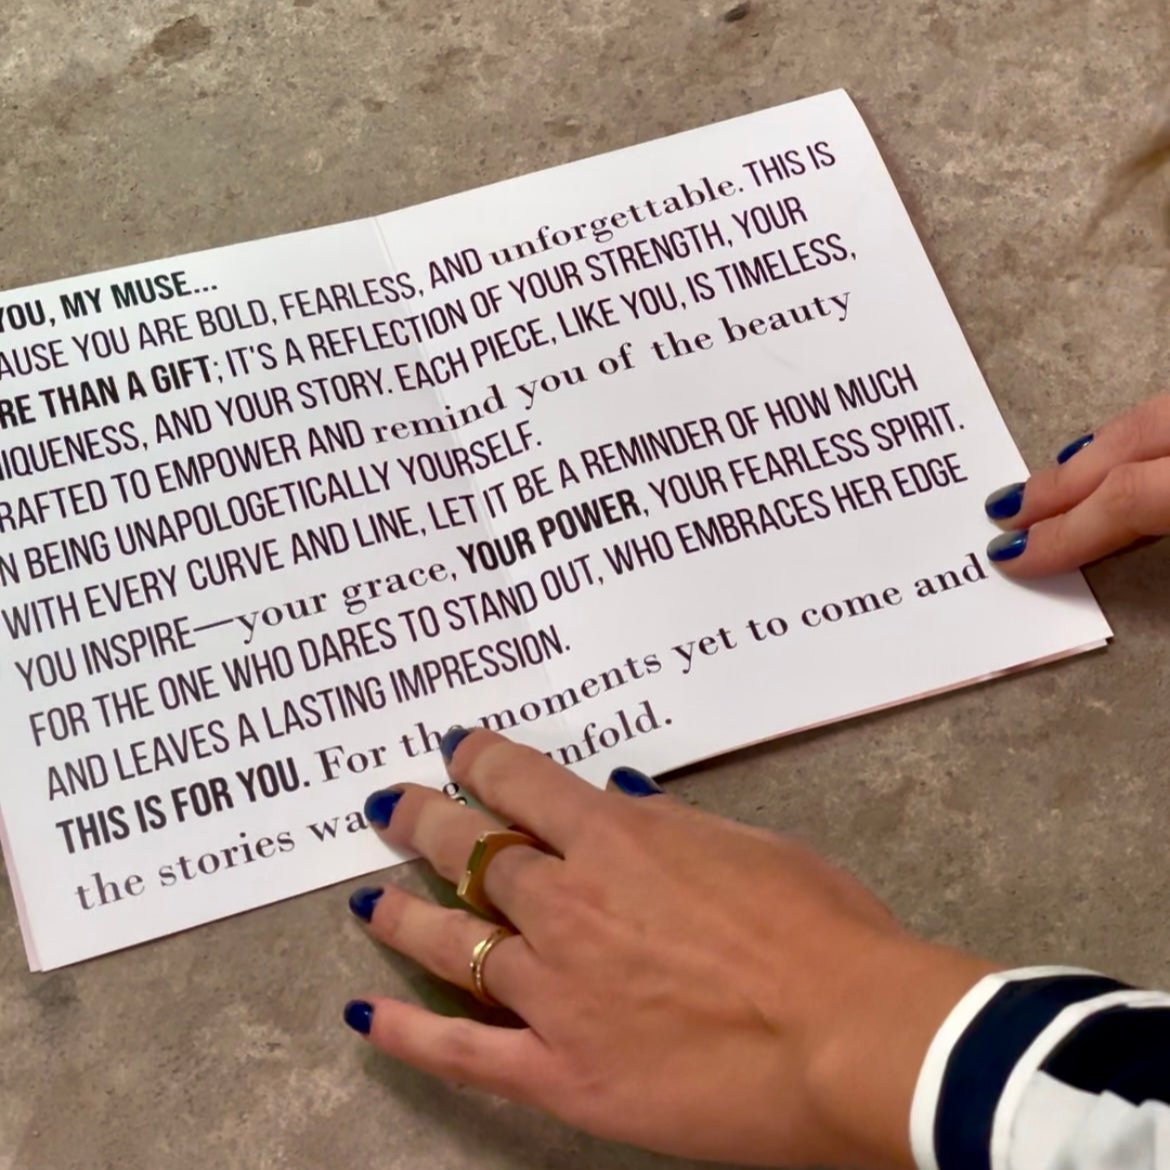 YOU, MY MUSE...
AUSE YOU ARE BOLD, FEARLESS, AND unforgettable. THIS IS
RE THAN A GIFT; IT'S A REFLECTION OF YOUR STRENGTH, YOUR
IQUENESS, AND YOUR STORY. EACH PIECE, LIKE YOU, IS TIMELESS,
RAFTED TO EMPOWER AND remind you of the beauty
N BEING UNAPOLOGETICALLY YOURSELF.
WITH EVERY CURVE AND LINE, LET IT BE A REMINDER OF HOW MUCH
YOU INSPIRE—your grace, YOUR POWER, YOUR FEARLESS SPIRIT.
FOR THE ONE WHO DARES TO STAND OUT, WHO EMBRACES HER EDGE
AND LEAVES A LASTING IMPRESSION.
THIS IS FOR YOU. For the moments yet to come and
the stories unfold.